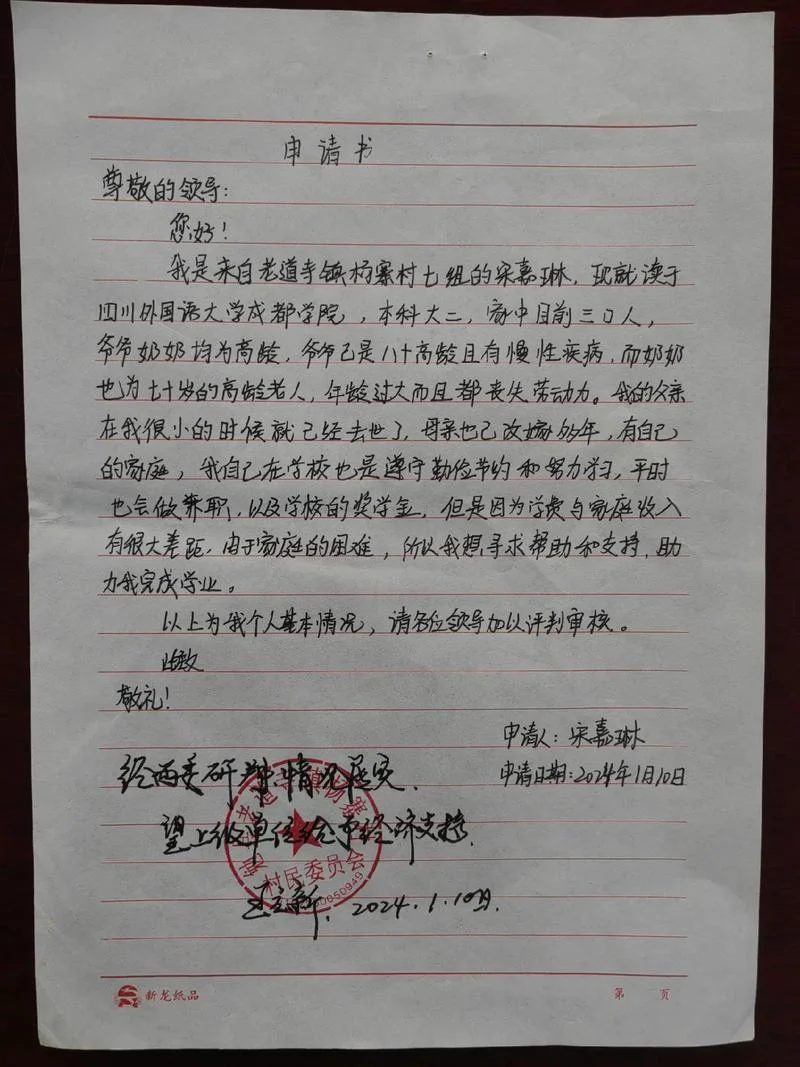 申请书
尊敬的领导:
您好!
我是来自老道寺镇杨寨村七组的宋嘉琳,现就读于
四川外国语大学成都学院,本科大二,家中目前三口人,
爷爷奶奶均为高龄,爷爷已是八十高龄且有慢性疾病,而奶奶
也为七十岁的高龄老人,年龄过大而且都丧失劳动力。我的父亲
在我很小的时候就已经去世了,母亲也已改嫁多年,有自己
的家庭,我自己在学校也是遵守勤俭节约和努力学习,平时
也会做兼职,以及学校的奖学金,但是因为学费与家庭收入
有很大差距,由于家庭的困难,所以我想寻求帮助和支持,助
力我完成学业。
以上为我个人基本情况,请各位领导加以评判审核。
此致
敬礼!
申请人:宋嘉琳
申请日期:2024年1月10日
经两委研判情况属实.
望上级单位给予经济支持.
2024.1.10日.
老道寺镇杨寨
村民委员会
050949
新龙纸品
第 页